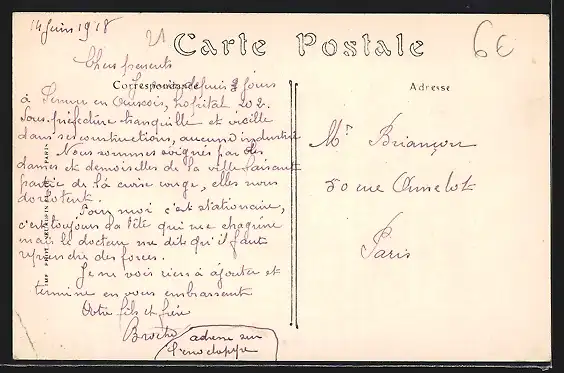 14 Juin 1918
21
Carte Postale
6€
Chers parents
Correspondance
Adresse
depuis 3 jours
à Semur en Auxois, hopital 202.
Sous-préfecture tranquille et vieille
dans ses constructions, aucune industrie
Nous sommes soignés par des
dames et demoiselles de la ville faisant
partie de la croix rouge, elles nous
dorlotent.
Pour moi c'est stationnaire,
c'est toujours la tête qui me chagrine
mais le docteur me dit qu'il faut
reprendre des forces.
Je ne vois rien à ajouter et
termine en vous embrassant
Votre fils et frère
adresse sur
l'enveloppe
Mr Briançon
50 rue Amelot
Paris